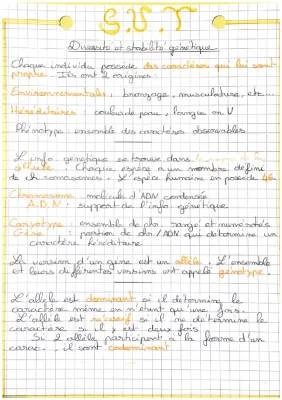 S.V.T
Diversité et stabilité génétique
Chaque individu possède des caractères qui lui sont
propre. Ils ont 2 origines :
Environnementals : bronzage, musculature, etc...
Héréditaires : couleur de peau, langue en U
Phénotype : ensemble des caractères observables
L'info génétique se trouve dans
cellule. Chaque espèce a un nombre défini
de ch romosomes. L'espèce humaine en possède 46.
Chromosome : molécule d'ADN condensée
A.D.N : support de l'info génétique
Caryotype : ensemble de chr. rangé et numérotés
Gène : portion de chr/ADN qui détermine un
caractère héréditaire
La version d'un gène est un allèle. L'ensemble
et leurs différentes versions est appelé génotype.
L'allèle est dominant si il détermine le
caractère même en n'étant qu'une fois.
L'allèle est récessif si il ne détermine le
caractère si il y est deux fois
Si 2 allèle participent à la forme d'un
carac. il sont codominant.